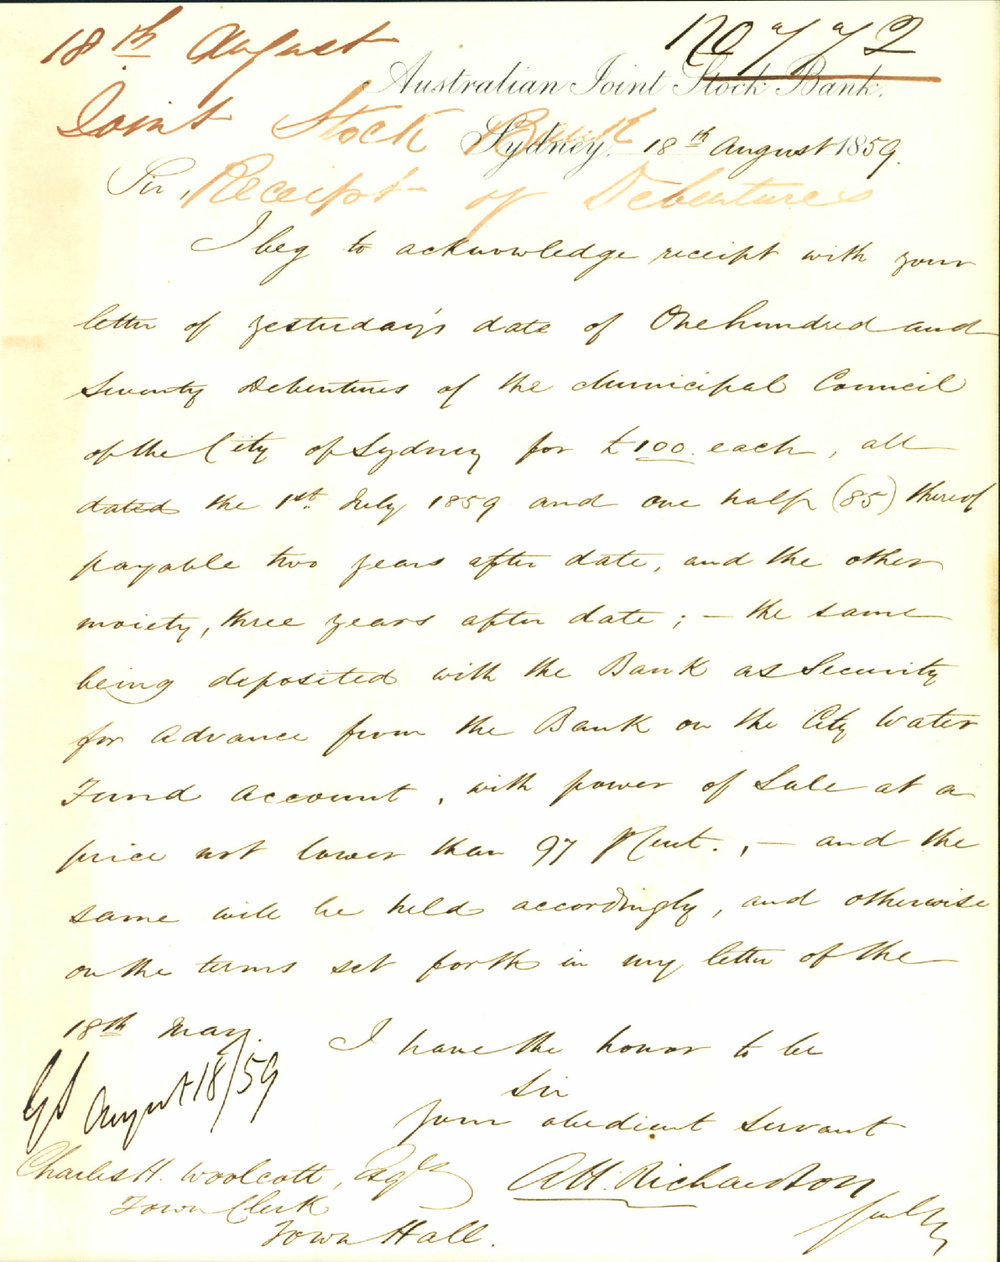 18th August
No 772
Australian Joint Stock Bank.
Joint Stock Bank
Sydney. 18th August 1859.
Sir,
Receipt of Debentures
I beg to acknowledge receipt with your
letter of yesterday's date of One hundred and
Seventy Debentures of the Municipal Council
of the City of Sydney for £100 each, all
dated the 1st July 1859 and one half (85) thereof
payable two years after date, and the other
moiety, three years after date; – the same
being deposited with the Bank as Security
for Advance from the Bank on the City Water
Fund Account, with power of Sale at a
price not lower than 97 P Cent., – and the
same will be held accordingly, and otherwise
on the terms set forth in my letter of the
18th May.
I have the honor to be
Sir
Your obedient Servant
August 18/59
Charles H. Woolcott, Esqre
A H. Richardson
Town Clerk
Town Hall.